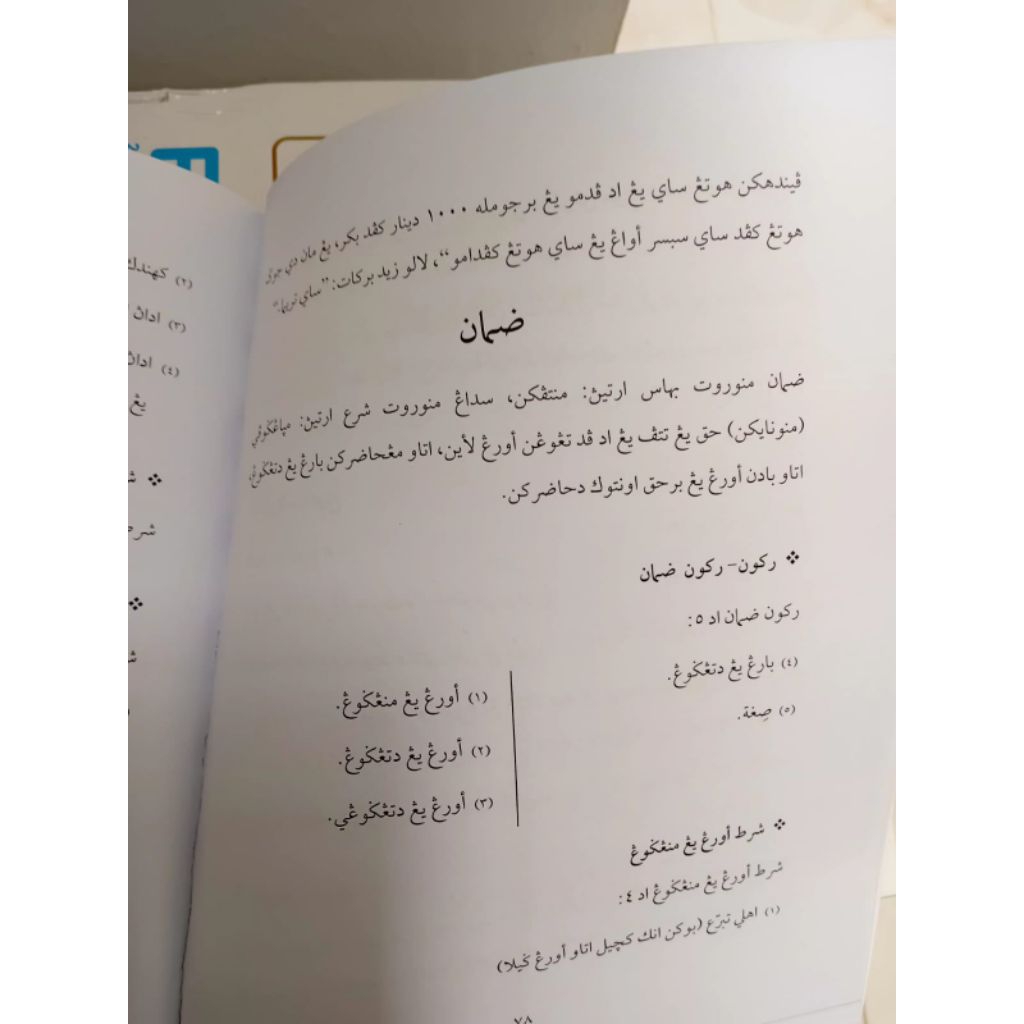 ڤيندهكن هوتڠ ساي يڠ اد ڤدمو يڠ برجومله ١٠٠٠ دينار كڤد بكر، يڠ مان دي جوݢ
هوتڠ كڤد ساي سبسر أواڠ يڠ ساي هوتڠ كڤدامو“، لالو زيد بركات: ”ساي تريما.“
ضمان
ضمان منوروت بهاس ارتيڽ: منتڤكن، سداڠ منوروت شرع ارتيڽ: مڽاڠݢوڤي
(منونايكن) حق يڠ تتڤ يڠ اد ڤد تڠݢوڠن أورڠ لأين، اتاو مڠحاضركن بارڠ يڠ دتڠݢوڠ،
اتاو بادن أورڠ يڠ برحق اونتوك دحاضركن.
❖ ركون- ركون ضمان
ركون ضمان اد ٥:
(١) أورڠ يڠ منڠݢوڠ.
(٢) أورڠ يڠ دتڠݢوڠ.
(٣) أورڠ يڠ دتڠݢوڠي.
(٤) بارڠ يڠ دتڠݢوڠ.
(٥) صِغة.
❖ شرط أورڠ يڠ منڠݢوڠ
شرط أورڠ يڠ منڠݢوڠ اد ٤:
(١) اهلي تبرّع (بوكن انك كچيل اتاو أورڠ ݢيلا)
٧٨
(٢)
(٣) اداڽ
(٤)
يڠ
❖
شرط
❖